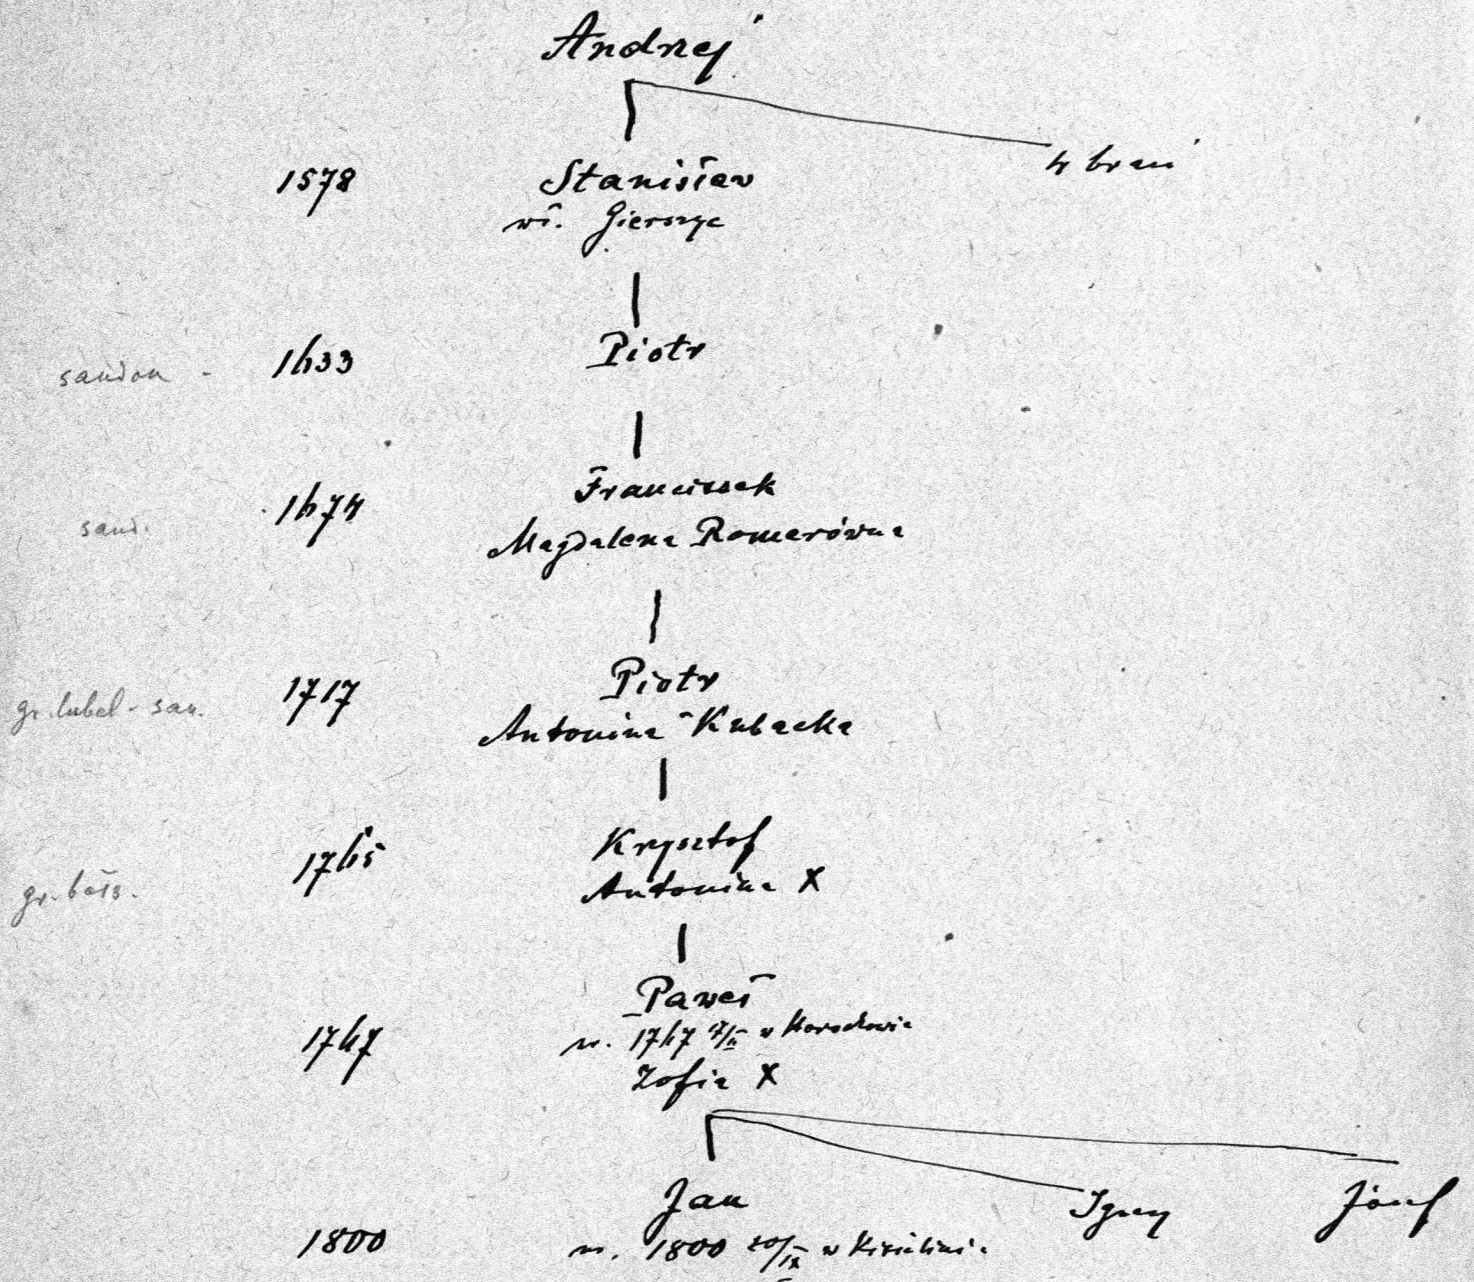 Andrzej
4 braci
1578 Stanisław
wł. Gierszyc
sandom - 1633 Piotr
sand. 1674 Franciszek
Magdalena Romerówna
gr. lubel - san. 1717 Piotr
Antonina Kubacka
gr. bełs. 1765 Krzysztof
Antonina X
Paweł
1767 ur. 1767 w
Zofia X
Jan Ignacy Józef
1800 ur. 1800 20/IX w Kisielinie